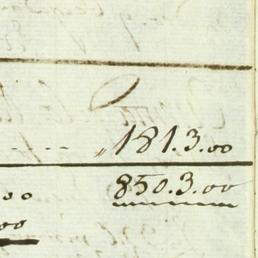 181.3.00
00 850.3.00
00